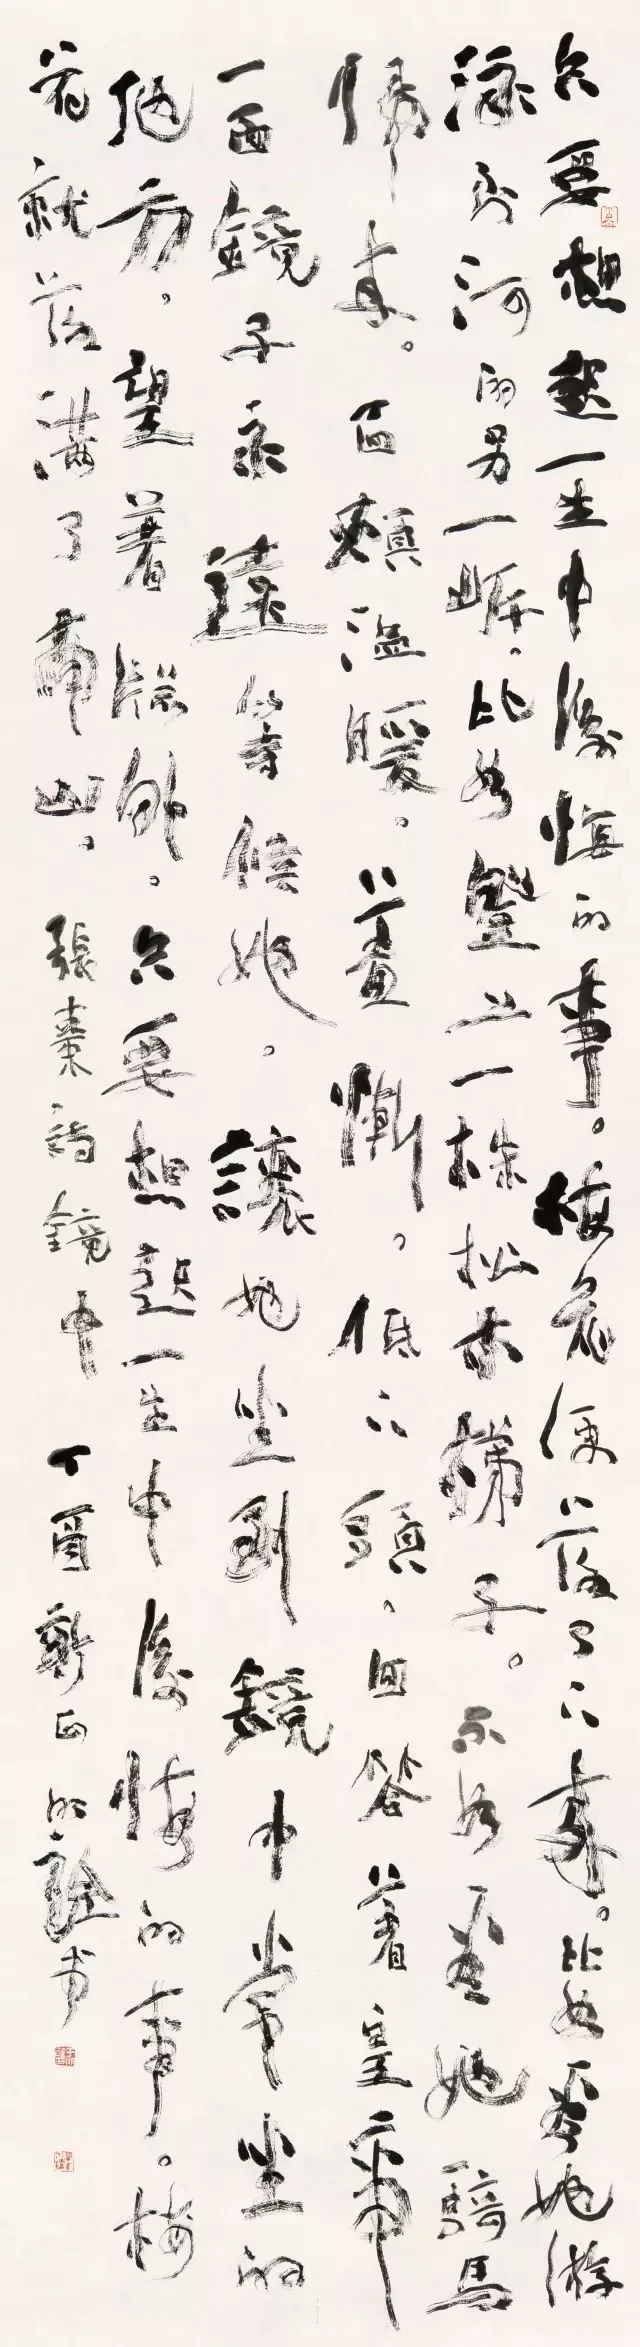 只要想起一生中後悔的事。梅花便落了下來。比如看她游
泳到河的另一岸。比如登上一株松木梯子。不如看她騎馬
歸來。面頰溫暖。羞慚。低下頭。回答著皇帝
一面鏡子永遠等候她。讓她坐到鏡中常坐的
地方。望著牕外。只要想起一生中後悔的事。梅
花就落滿了南山。張棗詩鏡中 丁酉新正 書